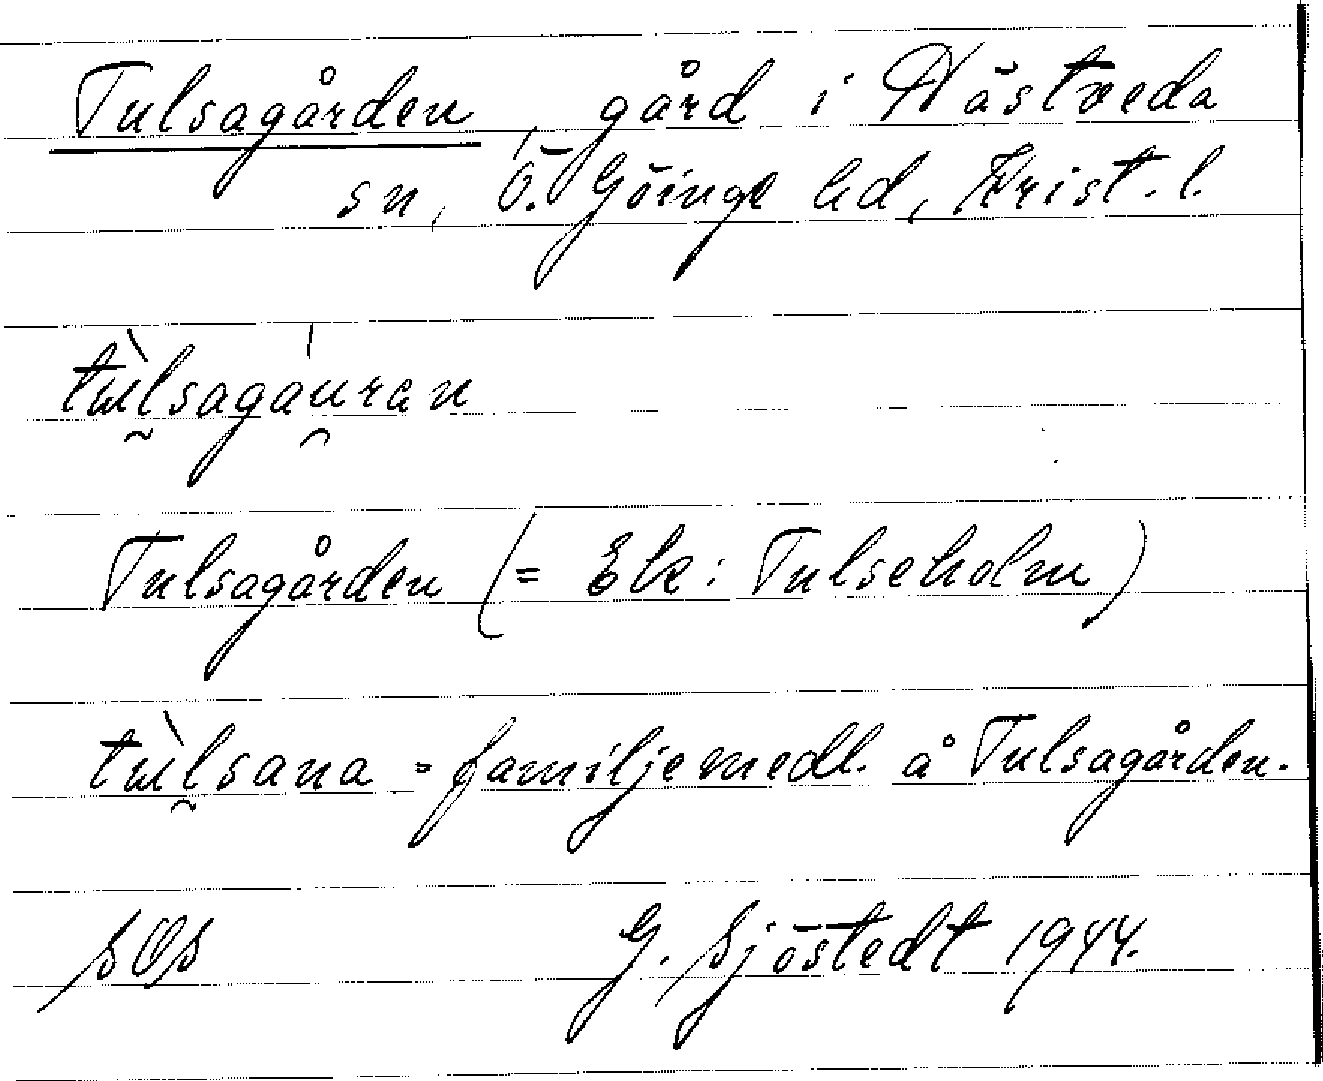 Tulsagården, gård i Hästveda
sn, Ö. Göinge hd, Krist. l.
tù̠lsagáu̯ran
Tulsagården (= Ek: Tulseholm)
tù̠lsana = familjemedl. å Tulsagården.
SOS G. Sjöstedt 1944.